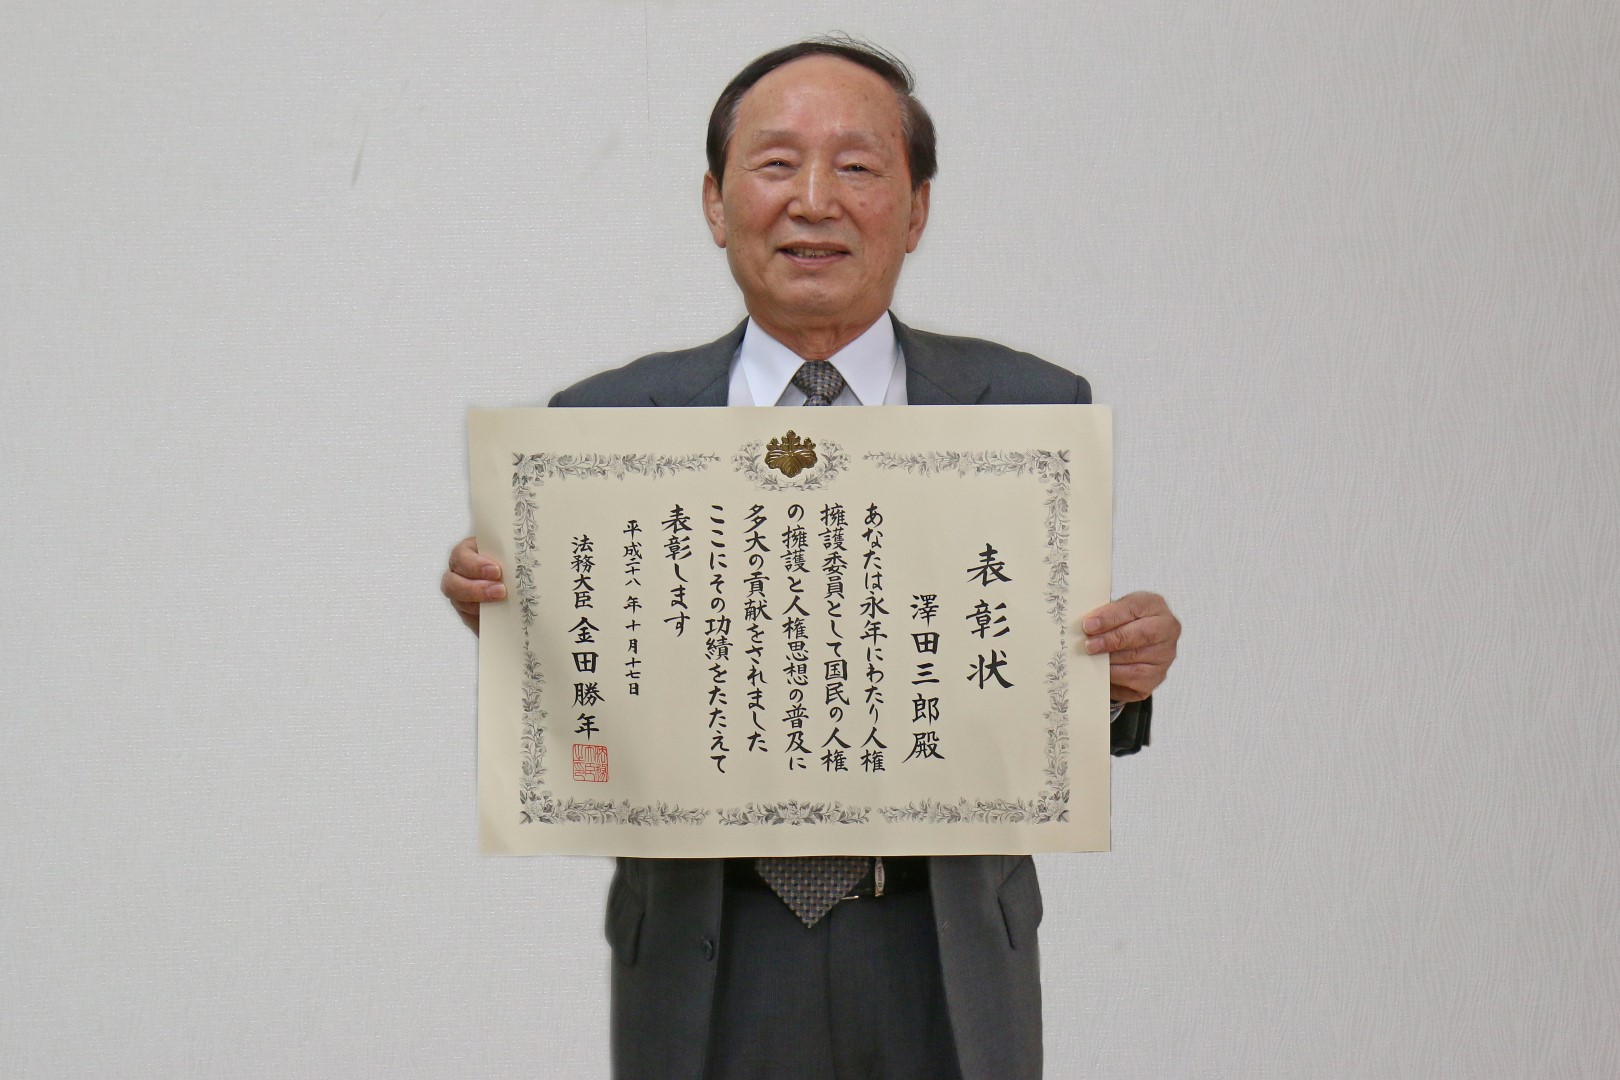 表彰状
澤田三郎殿
あなたは永年にわたり人権
擁護委員として国民の人権
の擁護と人権思想の普及に
多大の貢献をされました
ここにその功績をたたえて
表彰します
平成二十八年十月十七日
法務大臣 金田勝年
法務大臣之印